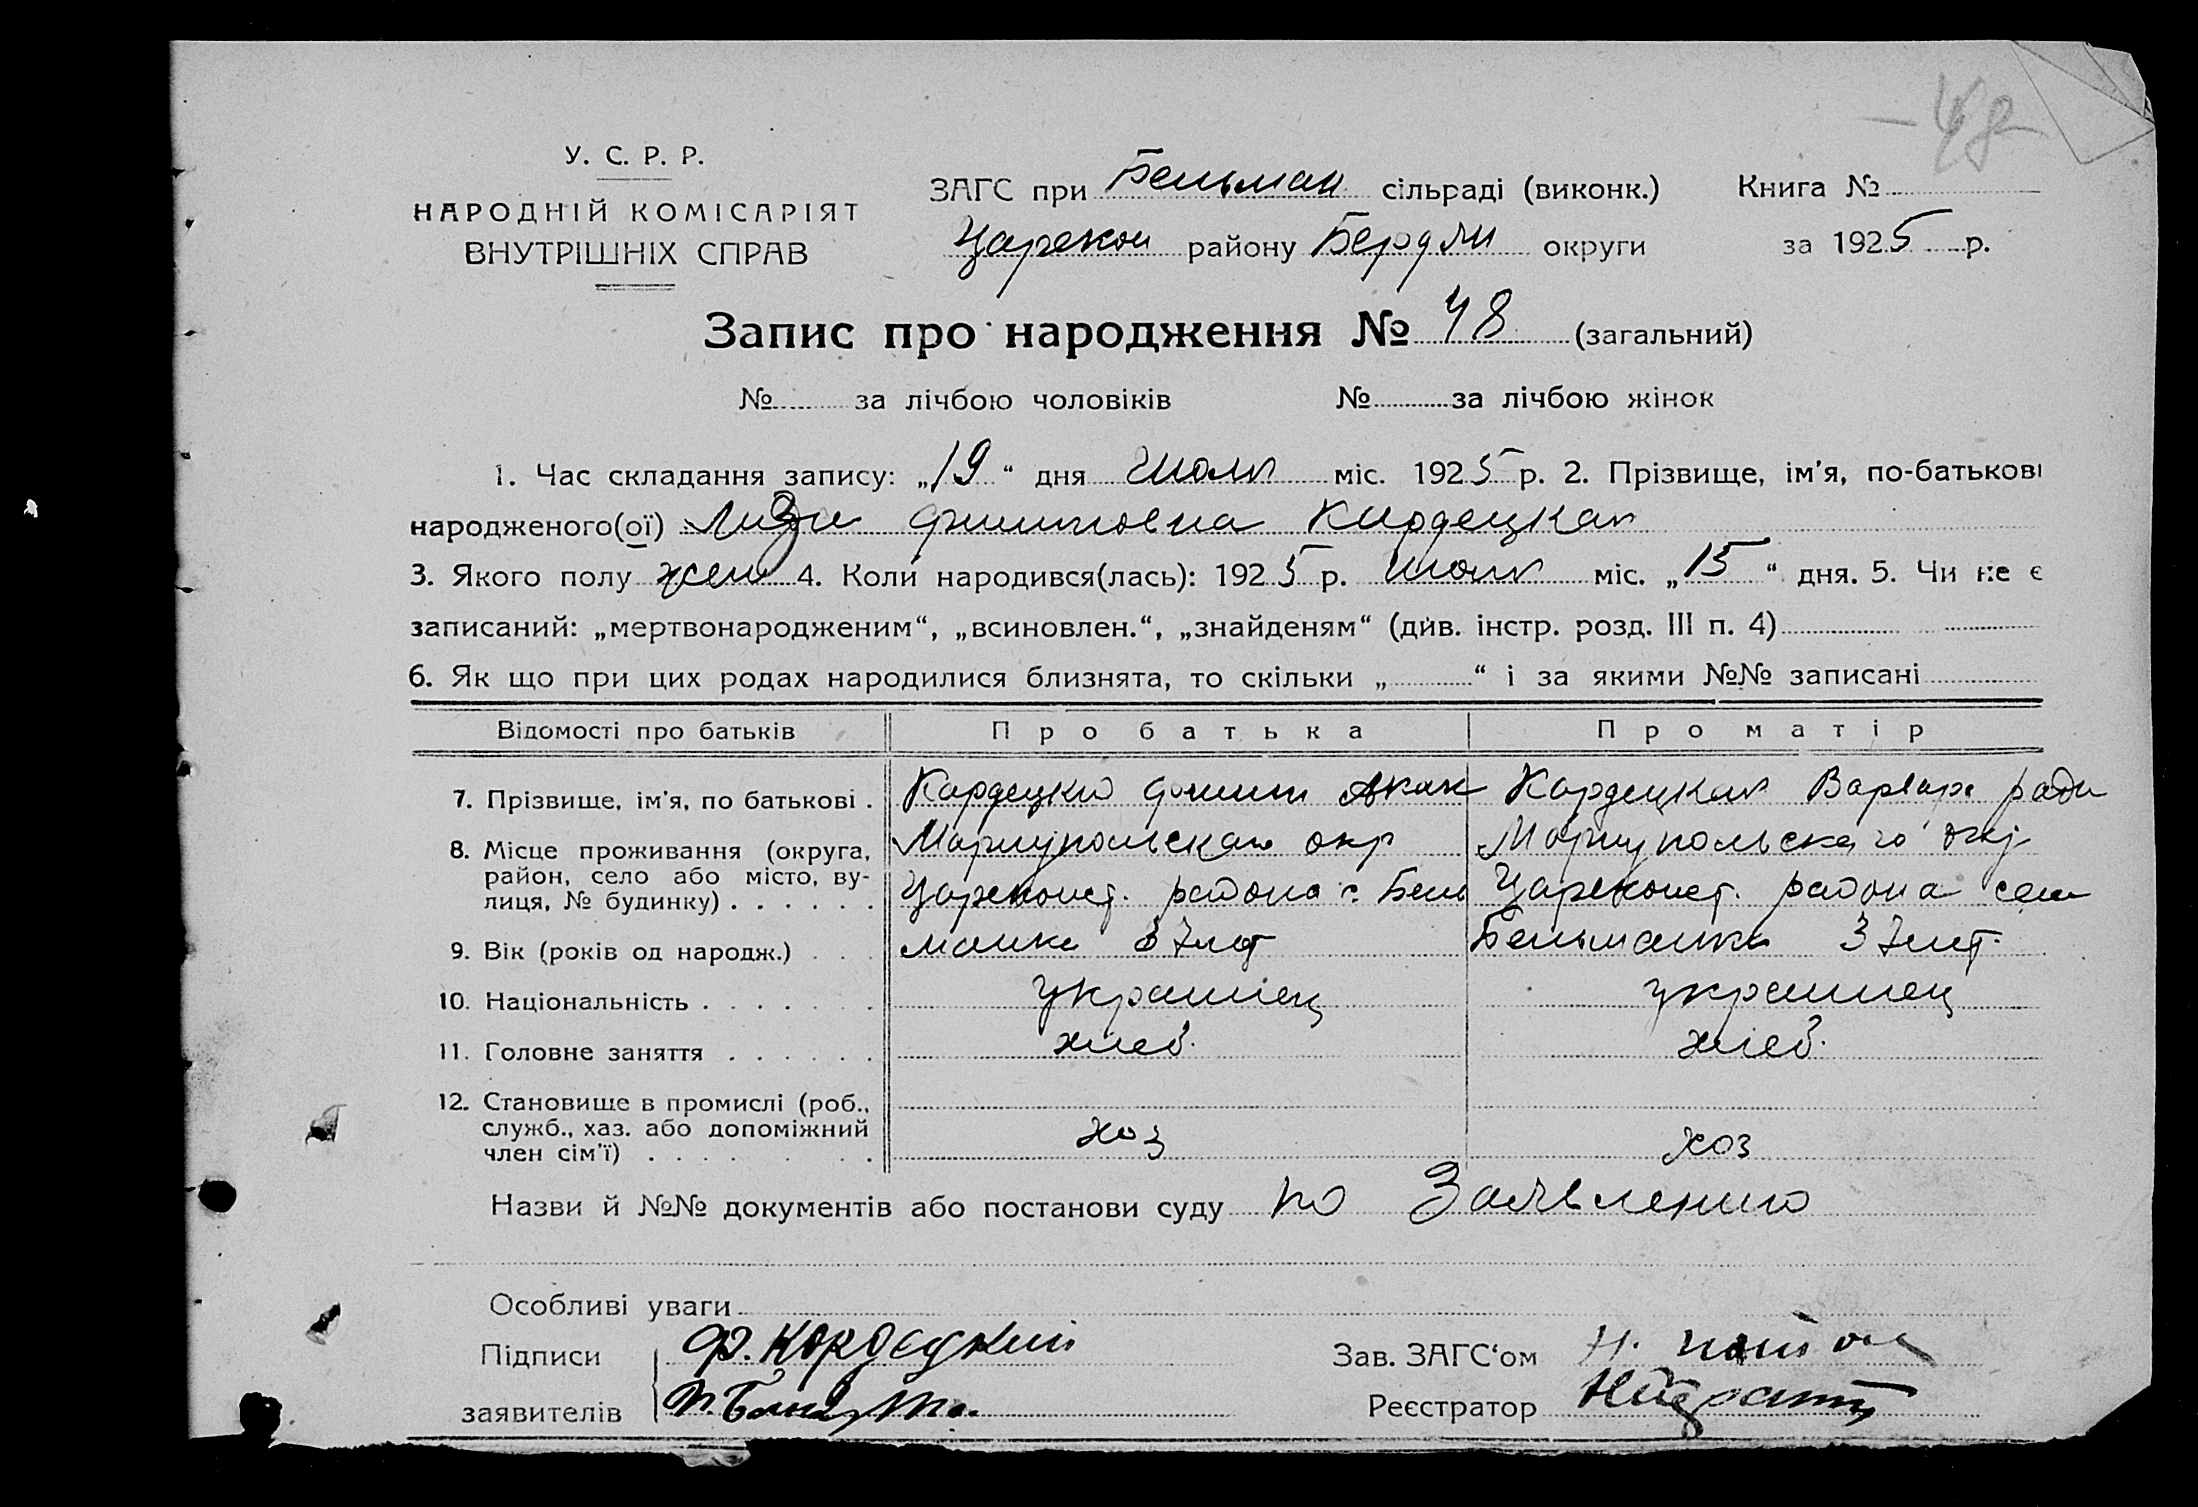 48
У. С. Р. Р.
НАРОДНІЙ КОМІСАРІЯТ
ВНУТРІШНІХ СПРАВ
ЗАГС при Бельман сільраді (виконк.) Книга №
Царекон району Бердян округи за 1925 р.
Запис про народження № 48 (загальний)
№ за лічбою чоловіків № за лічбою жінок
1. Час складання запису: „19“ дня Июля міс. 1925 р. 2. Прізвище, ім'я, по-батькові
народженого(ої) Кардецкая
3. Якого полу жен 4. Коли народився(лась): 1925 р. Июля міс. „15“ дня. 5. Чи не є
записаний: „мертвонародженим“, „всиновлен.“, „знайденям“ (див. інстр. розд. III п. 4)
6. Як що при цих родах народилися близнята, то скільки „ “ і за якими №№ записані
Відомості про батьків Про батька Про матір
7. Прізвище, ім'я, по батькові . Кардецкий Акак Кардецкая Варвара
8. Місце проживання (округа, район, село або місто, вулиця, № будинку) . . . . . . Мариупольская окр Мариупольского окр
Цареконст. района с. Бель Цареконст. района села
9. Вік (років од народж.) . . . манка 37 лет Бельманка 37 лет.
10. Національність . . . . . . . украинец украинец
11. Головне заняття . . . . . . хлеб. хлеб.
12. Становище в промислі (роб., служб., хаз. або допоміжний член сім'ї) . . . . . . хоз хоз
Назви й №№ документів або постанови суду по Заявлению
Особливі уваги
Підписи Ф. Кордецкий Зав. ЗАГС‘ом
заявителів Реєстратор